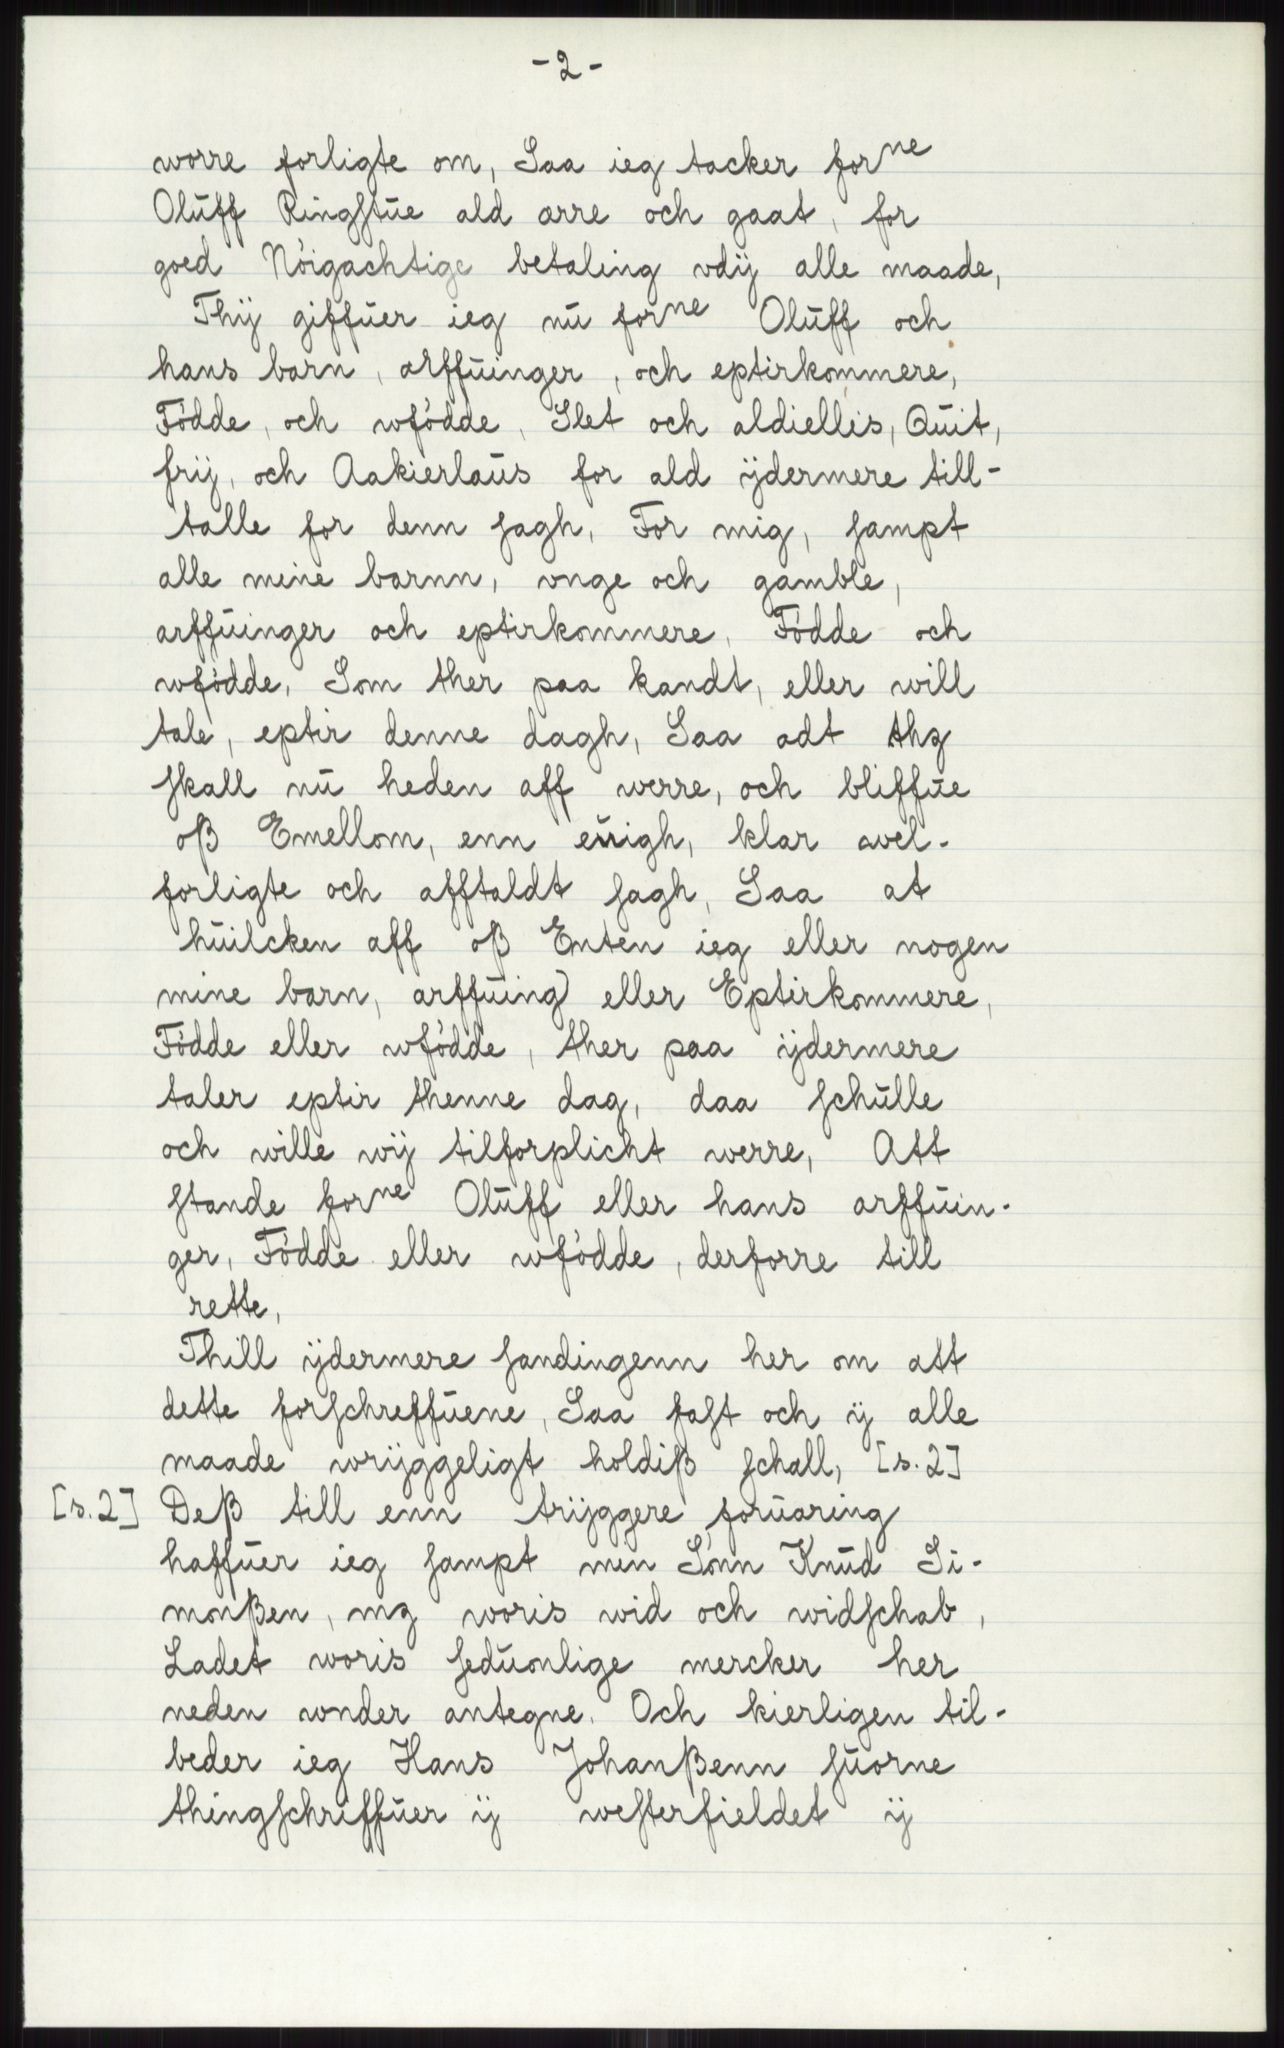 -2-
worre forligte om, Saa ieg tacker for^ne
Olŭff Ringstŭe ald ærre och gaat, for
goed Nóigachtige betaling vdÿ alle maade,
Thÿ giffŭer ieg nŭ for^ne Olŭff och
hans barn, arffŭinger, och eptirkommere,
Fódde, och wfódde, Slet och aldiellis, Qŭit,
frij, och Aakierlaŭs for ald ÿdermere till-
talle for denn sagh, For mig, sampt
alle meine barnn, vnge och gamble,
arffŭinger och eptirkommere, Fódde och
wfódde, Som ther paa kandt, eller will
tale, eptir denne dagh, Saa adt thz
skall nŭ heden aff werre, och bliffŭe
oß Emellom, enn eŭigh, klar avel-
forligte och afftaldt sagh, Saa at
hŭilcken aff oß Enten ieg eller nogen
mine barn, arffŭing) eller Eptirkommere,
Fódde eller wfódde, ther paa ÿdermere
taler eptir thenne dag, daa schŭlle
och wille wÿ tilforplicht werre, Att
stande for^ne Olŭff eller hans arffŭin-
ger, Fódde eller wfódde, derforre till
rette,
Thill ÿdermere sandingenn her om att
dette forschreffŭene, Saa fast och ÿ alle
maade wrÿggeligt holdiß schall, [s.2]
[s.2] Deß till enn trÿggere forŭaring
haffŭer ieg sampt min Sónn Knŭd Si-
monßen, mz woris wid och widschab,
Ladet woris seduonlige mercker her
neden wnder antegne. Och kierligen til-
beder ieg Hans Johanßenn sŭorne
thingschriffŭer ÿ westerfieldet ÿ